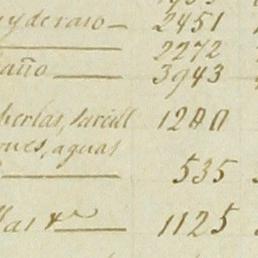 y de raso — 2451
2272
año — 3943
biertas, sarcill 1280
ones, aguas
535
las &ra — 1125